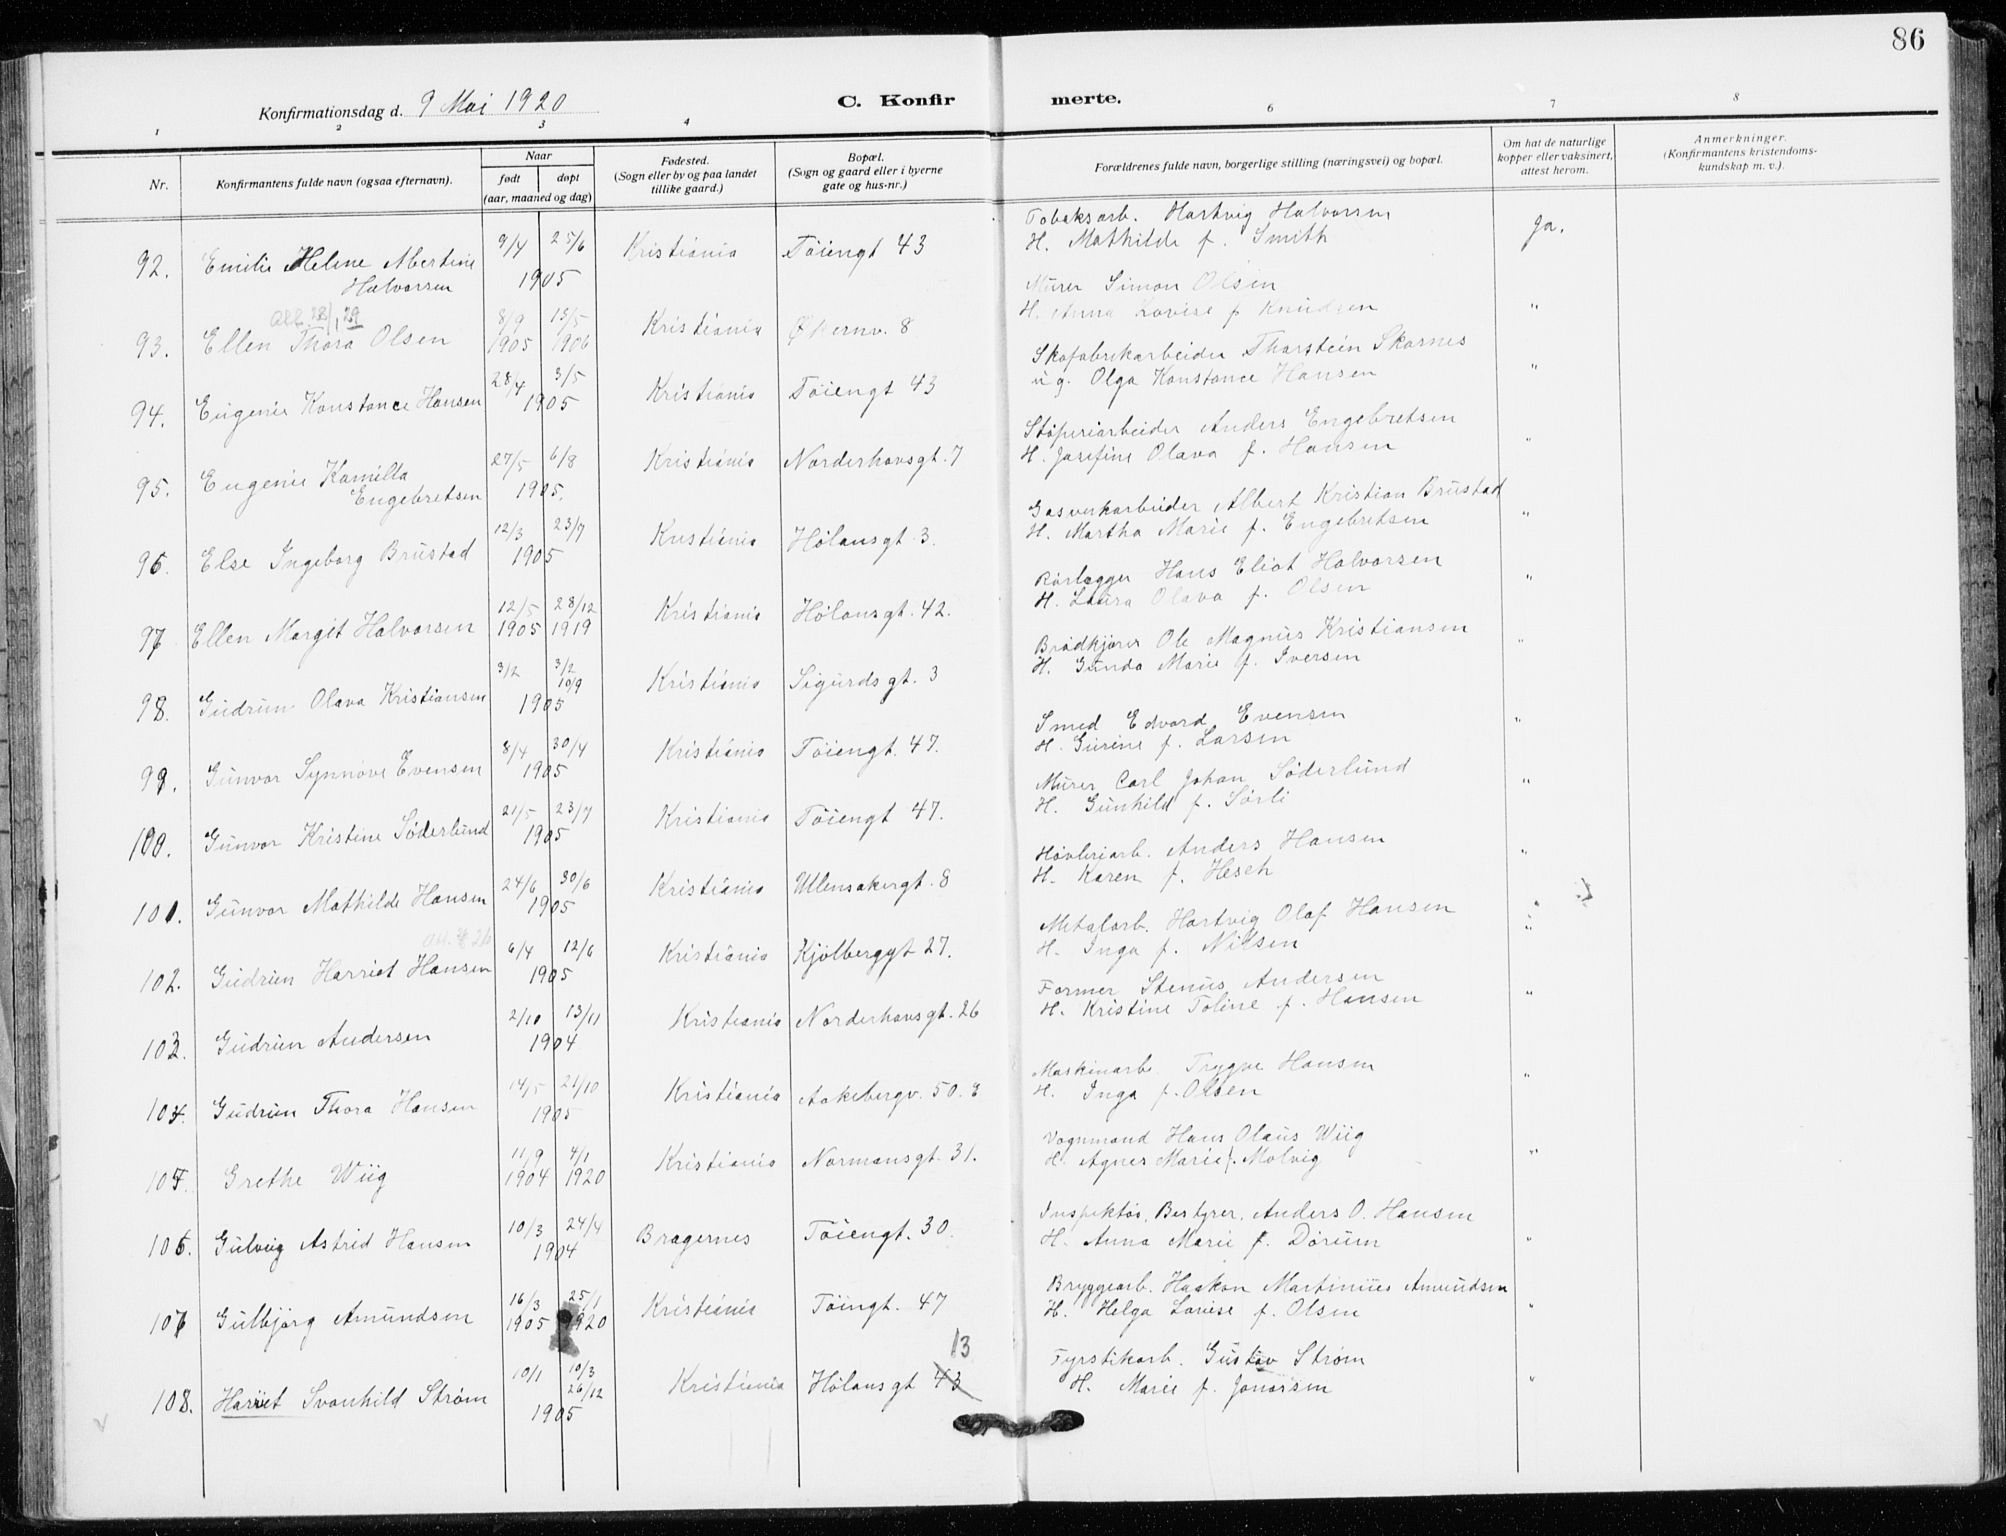 86
Konfirmationsdag d. 9 Mai 1920
C. Konfirmerte.
1 2 3 4 6 7 8
Nr.
Konfirmantens fulde navn (ogsaa efternavn).
Naar
født døpt
(aar, maaned og dag)
Fødested.
(Sogn eller by og paa landet
tillike gaard.)
Bopæl.
(Sogn og gaard eller i byerne
gate og hus-nr.)
Forældrenes fulde navn, borgerlige stilling (næringsvei) og bopæl.
Om hat de naturlige
kopper eller vaksinert,
attest herom.
Anmerkninger.
(Konfirmantens kristendoms-
kundskap m. v.).
92. Emilie Helene Albertine Halvorsen 9/4 25/6 1905 Kristiania Tøiengt 43
Tobaksarb. Hartvig Halvorsen
H. Mathilde f. Smith ja.
93. Ellen Thora Olsen 8/9 1905 13/5 1906 Kristiania Økernv. 8
Murer Simon Olsen
H. Anna Lovise f Knudsen "
94. Eugenie Konstance Hansen 28/4 3/5 1905 Kristiania Tøiengt 43
Skofabrikarbeider Thorstein Skarnes
ug. Olga Konstance Hansen "
95. Eugenie Kamilla Engebretsen 27/5 6/8 1905. Kristiania Norderhovsgt. 7
Støperiarbeider Anders Engebretsen
H. Josefine Olava f. Hansen "
96. Else Ingeborg Brustad 12/3 23/7 1905 Kristiania Hølansgt 3.
Gasverkarbeider Albert Kristian Brustad
H. Martha Marie f. Engebretsen "
97. Ellen Margit Halvorsen 12/5 1905 28/12 1919 Kristiania Hølansgt. 42.
Rørlegger Hans Eliot Halvorsen
H. Laura Olava f. Olsen "
98. Gudrun Olava Kristiansen 3/2 3/2 10/9 1905 Kristiania Sigurdsgt. 3
Brødkjører Ole Magnus Kristiansen
H. Gunda Marie f. Iversen "
99. Gunvor Synnøve Evensen 8/4 30/4 1905 Kristiania Tøiengt. 47.
Smed Edvard Evensen
H. Gurine f. Larsen "
100. Gunvor Kristine Søderlund 21/5 23/7 1905 Kristiania Tøiengt 47.
Murer Carl Johan Søderlund
H. Gunhild f. Sørli "
101. Gunvor Mathilde Hansen 24/6 30/6 1905 Kristiania Ullensakergt. 8
Høvleriarb. Anders Hansen
H. Karen f. Hesch "
102. Gudrun Harriet Hansen 6/4 12/6 1905 Kristiania Kjølberggt 27.
Metalarb. Hartvig Olaf Hansen
H. Inga f. Nilsen "
103. Gudrun Andersen 2/10 13/11 1904 Kristiania Norderhovsgt. 26
Former Stenus Andersen
H. Kristine Toline f. Hansen "
104. Gudrun Thora Hansen 14/5 21/10 1905 Kristiania Aakebergv. 50.
Maskinarb. Trygve Hansen
H. Inga f. Olsen "
105. Grethe Wiig 11/9 1904 4/1 1920 Kristiania Normansgt. 31.
Vognmand Hans Olaus Wiig
H. Agnes Marie f. Molvig "
106. Gulvig Astrid Hansen 10/3 24/4 1904 Bragernes Tøiengt. 30.
Inspektør, Bestyrer, Anders O. Hansen
H. Anna Marie f. Dørum "
107 Gulbjørg Amundsen 16/3 1905 25/1 1920 Kristiania Tøingt. 47
Bryggearb. Haakon Martinius Amundsen
H. Helga Lovise f. Olsen "
108. Harriet Svanhild Strøm 10/1 10/3 26/12 1905 Kristiania Hølansgt 43 13
Fyrstikarb. Gustav Strøm
H. Marie f. Jonassen "